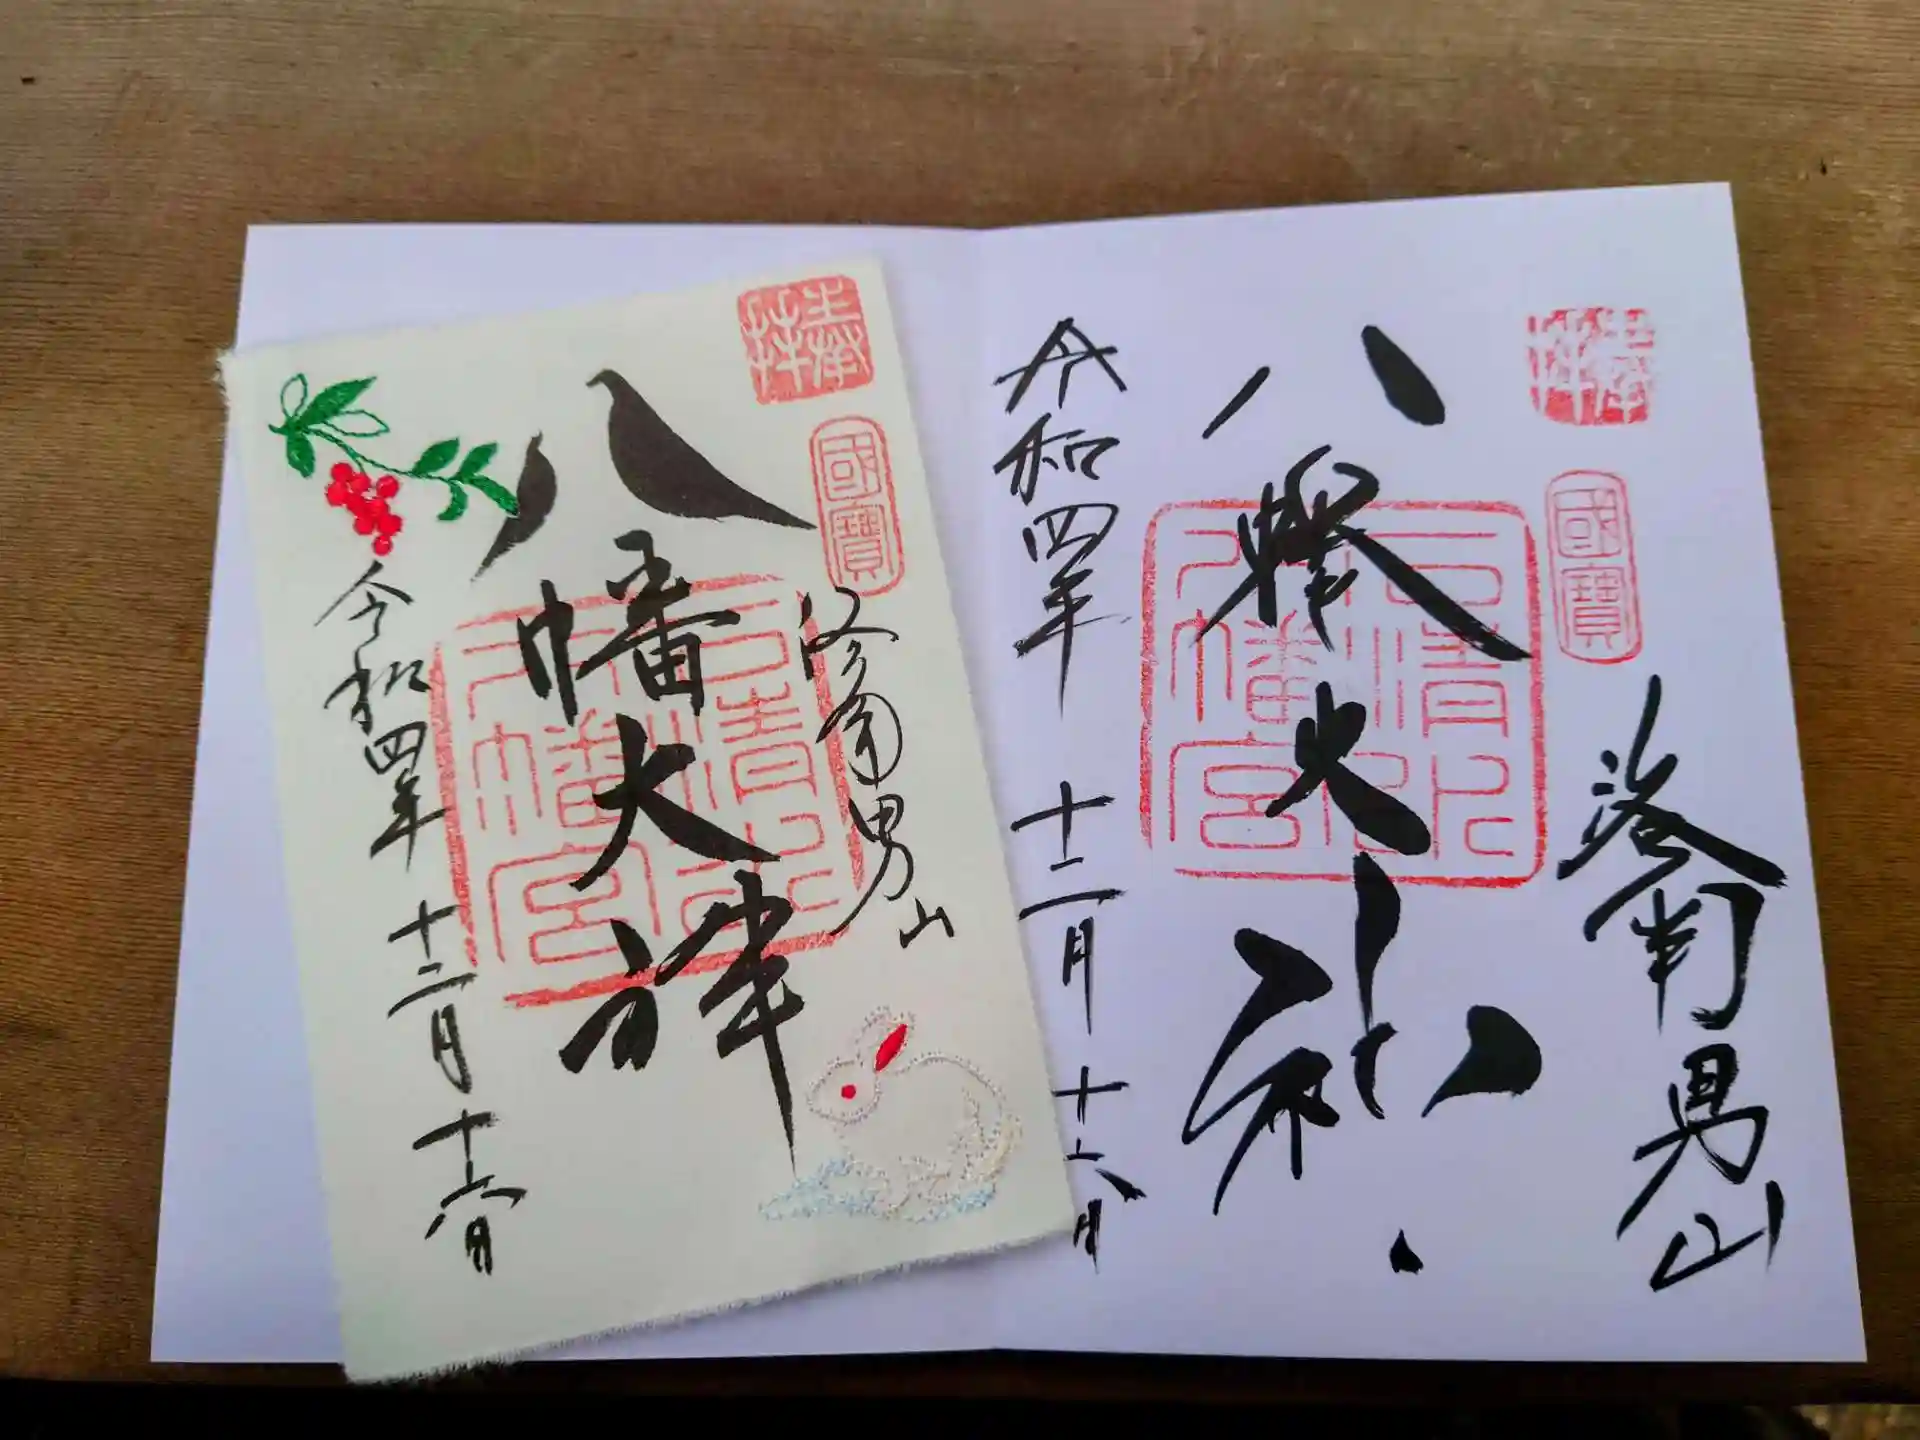 奉拝
國寶
洛南男山
八幡大神
石清水八幡宮
令和四年 十二月 十六日
奉拝
國寶
洛南男山
八幡大神
石清水八幡宮
令和四年 十二月 十六日